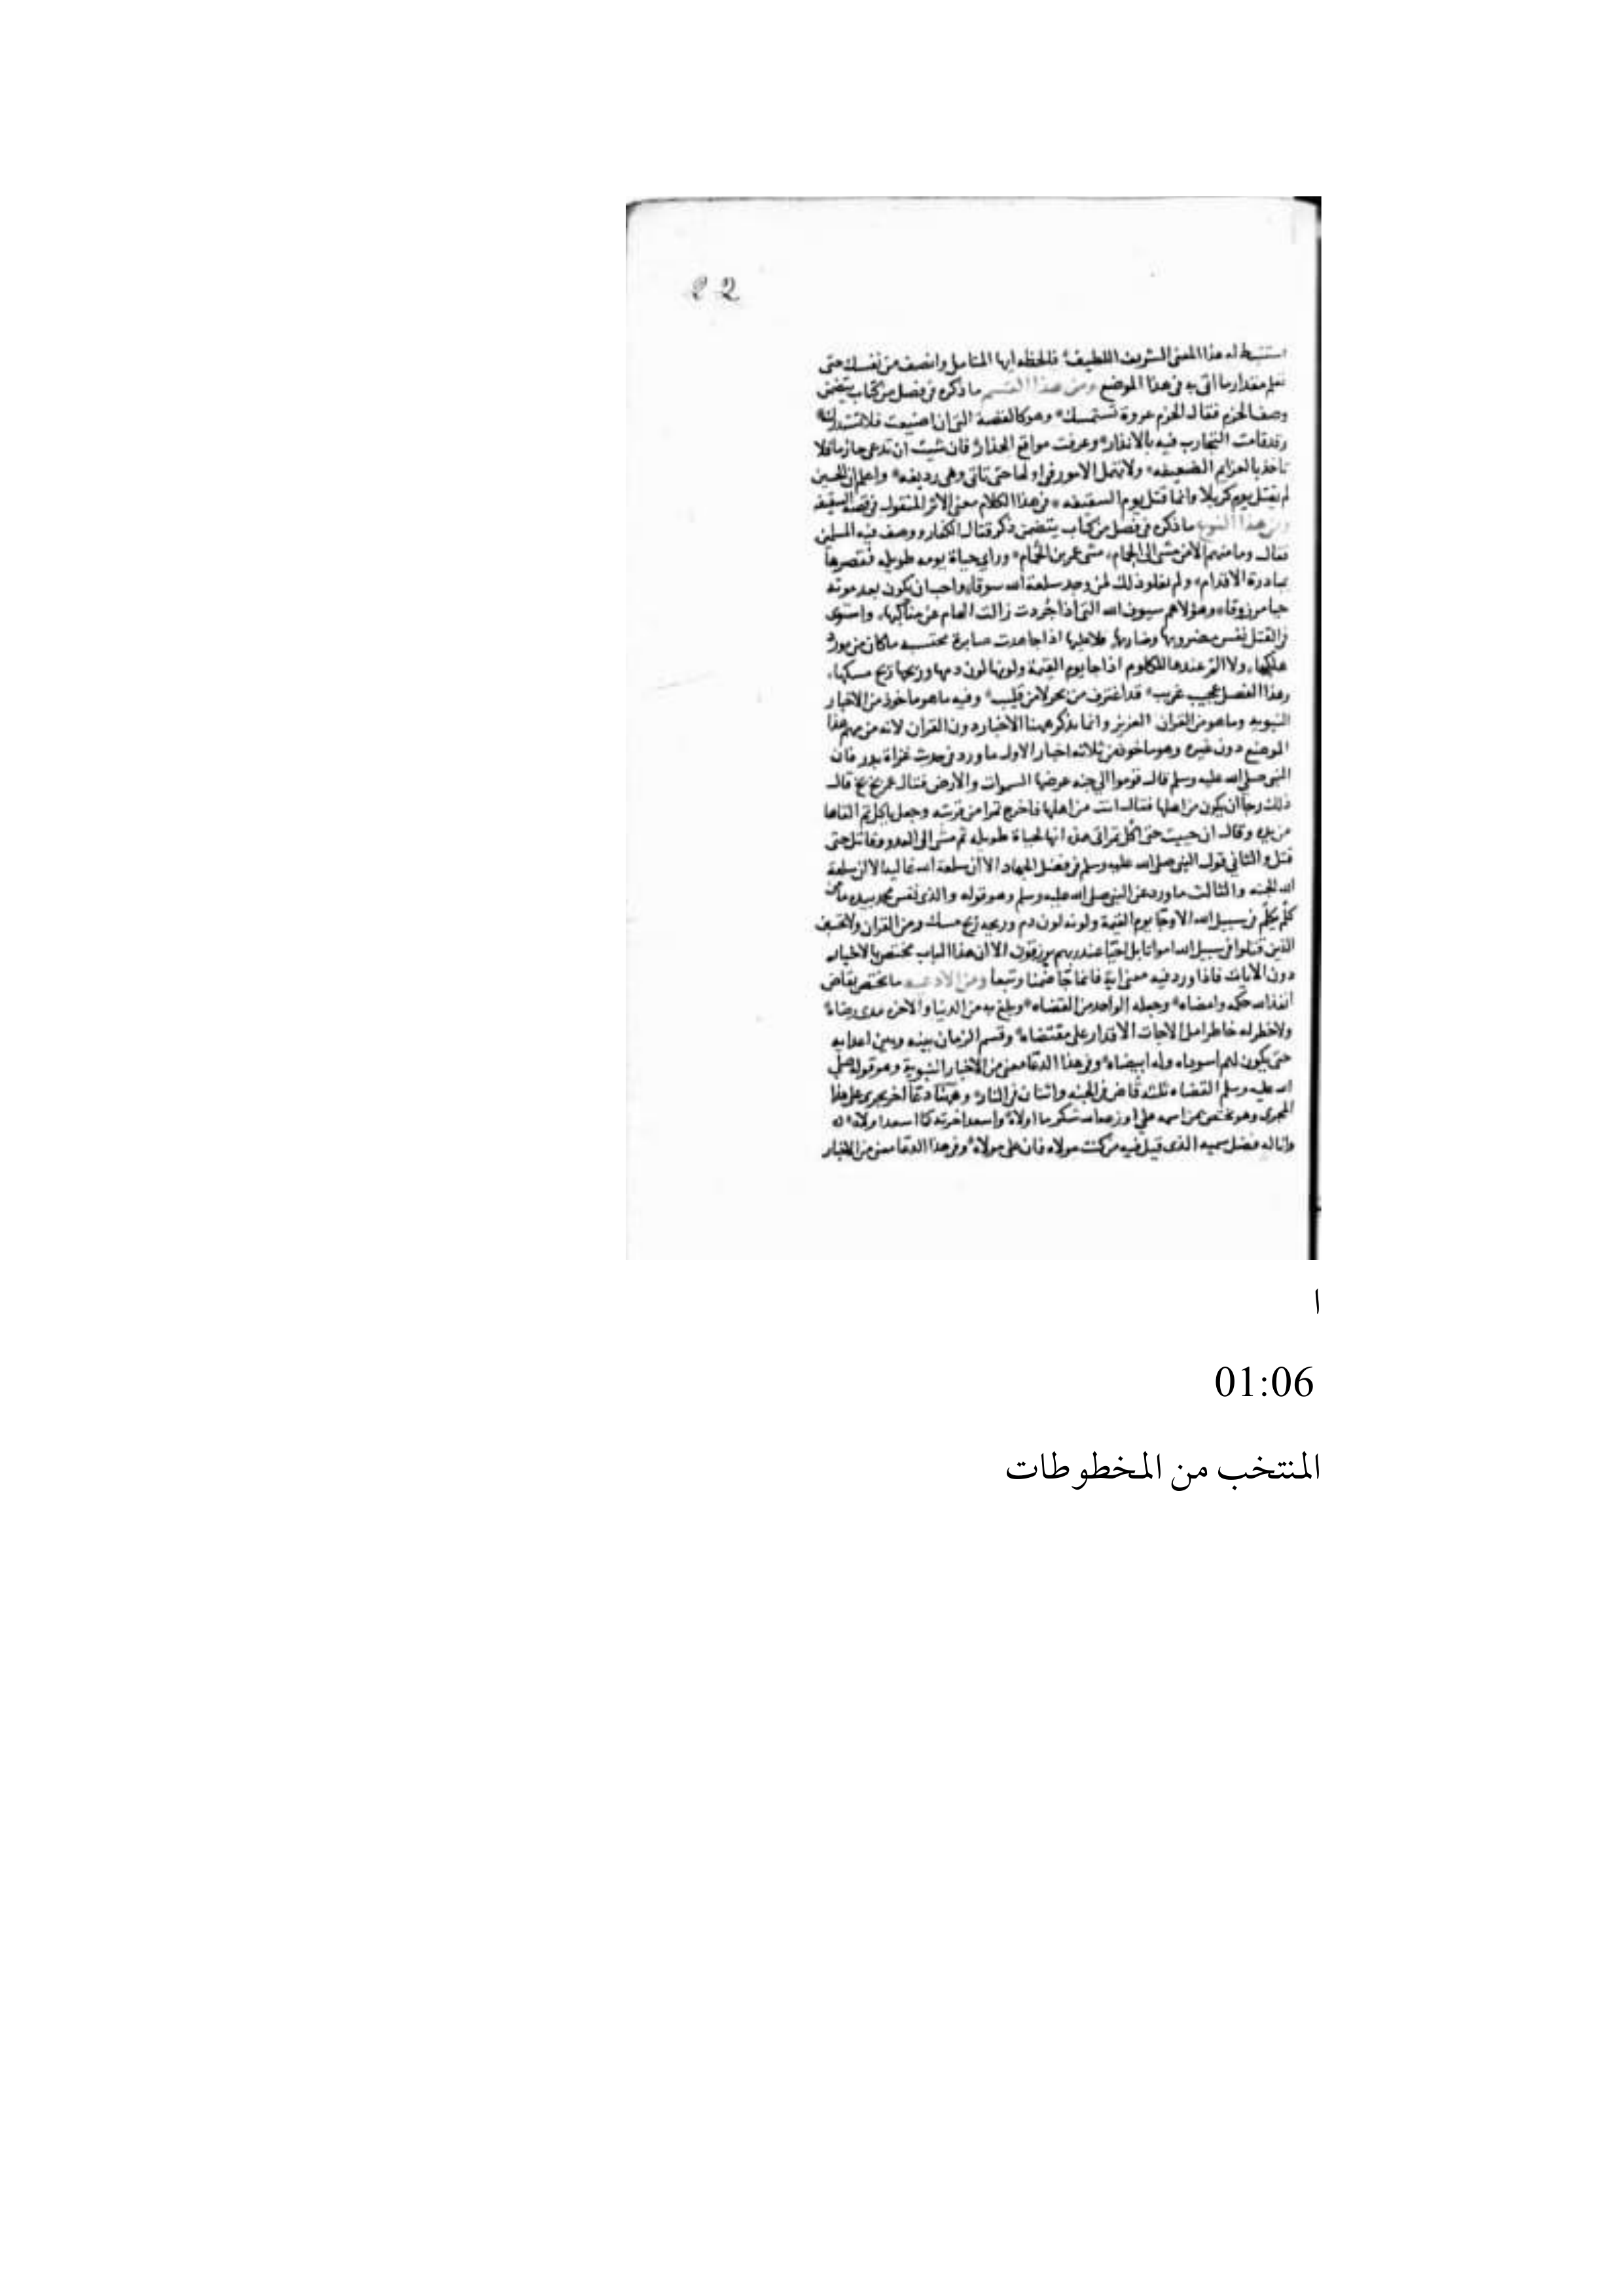 22
استنبط له هذا المعنى الشريف اللطيف فالحظه ايها المتامل وانصف من نفسك حتى
تعلم مقدار ما اتى به فى هذا الموضع ومن هذا القسم ما ذكره فى فصل من كتاب يتضمن
وصف الحزم فقال الحزم عروة تستمسك وهو كالفصة التى ان اضيعت فلا تستدرك
وقد قامت التجارب فيه بالانذار وعرفت مواقع الحذار فان شيت ان تدعى حازما فلا
تاخذ بالعزايم الضعيفه ولا تهمل الامور فى اولها حتى تاتى وهى رديفه واعلم ان الحسين
لم يقتل يوم كربلا وانما قتل يوم السقيفه فى هذا الكلام معنى الاثر المنقول فى قصة السقيفه
ومن هذا النوع ما ذكره فى فصل من كتاب يتضمن ذكر قتال الكفار ووصف فيه المسلمين
فقال وما منهم الا من مشى الى الحمام مشى عمر بن الحمام وراى حياة يومه طويله فقصرها
بمبادرة الاقدام ولم يغلو ذلك لمن وجد سلعة الله سوقا واحب ان يكون بعد موته
حيا مرزوقا وهولا هم سيوف الله التى اذا جردت زالت الهام عن مناكبها واستوى
فى القتل نفس مضروبها وضاربها
ولا الم عندها للكلوم اذا جا يوم القيمة ولونها لون دمها وريحها ريح مسكها
وهذا الفصل عجيب غريب قد اغترف من بحر لا من قليب وفيه ما هو ماخوذ من الاخبار
النبويه وما هو من القران العزيز وانما نذكر ههنا الاخبار دون القران لانه من مهم هذا
الموضع دون غيره وهو ماخوذ من ثلاثه اخبار الاول ما ورد فى حديث غزاة بدر فان
النبى صلى الله عليه وسلم قال قوموا الى جنه عرضها السموات والارض فقال عمر بخ بخ قال
ذلك رجا ان يكون من اهلها فقال انت من اهلها فاخرج تمرا من قرنه وجعل ياكل ثم القاها
من يده وقال ان حييت حتى اكل تمراتى هذه انها لحياة طويله ثم مشى الى العدو وقاتل حتى
قتل والثانى قول النبى صلى الله عليه وسلم فى فضل الجهاد الا ان سلعة الله غاليه الا ان سلعة
الله الجنه والثالث ما ورد عن النبى صلى الله عليه وسلم وهو قوله والذى نفس محمد بيده ما من
كلم يكلم فى سبيل الله الا وجا يوم القيمة ولونه لون دم وريحه ريح مسك ومن القران ولا تحسبن
الذين قتلوا فى سبيل الله امواتا بل احيا عند ربهم يرزقون الا ان هذا الباب مختص بالاخبار
دون الايات فاذا ورد فيه معنى اية فانما جا ضمنا وتبعا ومن الادعيه ما يختص بقاض
انفذ الله حكمه وامضاه وجعله الواحد من القضاه وبلغ به من الدنيا والاخره مدى رضاه
ولا خطر له خاطر امل الا جات الاقدار على مقتضاه وقسم الزمان بينه وبين اعدايه
حتى يكون لهم اسوداه وله ابيضاه وفى هذا الدعا معنى من الاخبار النبوية وهو قوله صلى
الله عليه وسلم القضاه ثلثه قاض فى الجنه واثنان فى النار وههنا دعا اخر يجرى على هذا
المجرى وهو مختص بمن اسمه على اوزعه الله شكر ما اولاه واسعد اخرته كما اسعد اولاه
واناله فضل سميه الذى قيل فيه من كنت مولاه فان على مولاه وفى هذا الدعا معنى من الاخبار
ا
01:06
المنتخب من المخطوطات